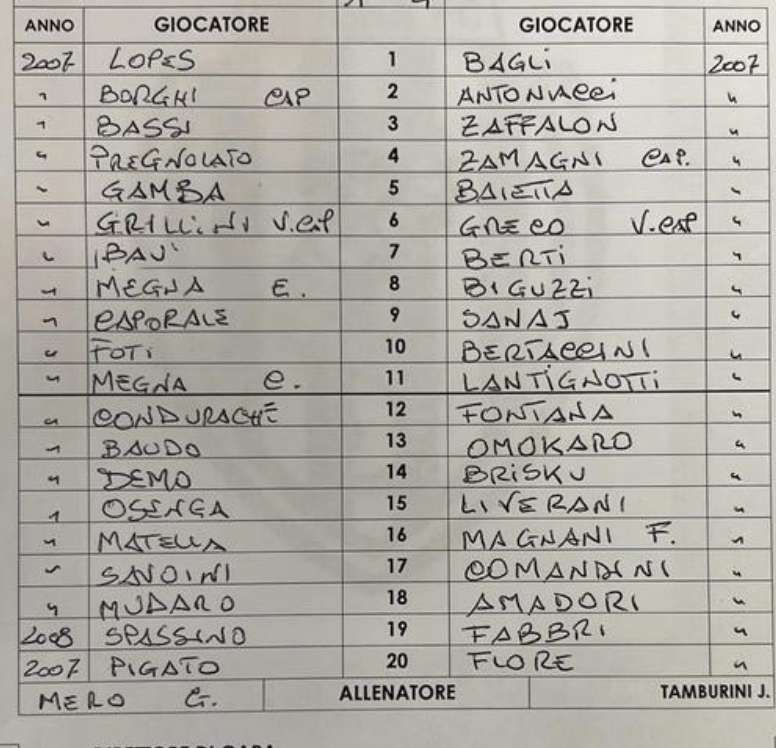 ANNO GIOCATORE GIOCATORE ANNO
2007 LOPES 1 BAGLI 2007
" BORGHI CAP 2 ANTONIACCI "
" BASSI 3 ZAFFALON "
" PREGNOLATO 4 ZAMAGNI CAP. "
" GAMBA 5 BAIETTA "
" GRILLINI V.CAP 6 GRECO V.CAP "
" BAU' 7 BERTI "
" MEGNA E. 8 BIGUZZI "
" CAPORALE 9 SANAJ "
" FOTI 10 BERTACCINI "
" MEGNA C. 11 LANTIGNOTTI "
" CONDURACHE 12 FONTANA "
" BAUDO 13 OMOKARO "
" DEMO 14 BRISKU "
" OSENGA 15 LIVERANI "
" MATELLA 16 MAGNANI F. "
" SAVOINI 17 COMANDINI "
" MUDARO 18 AMADORI "
2008 SPASSINO 19 FABBRI "
2007 PIGATO 20 FIORE "
MERO G. ALLENATORE TAMBURINI J.